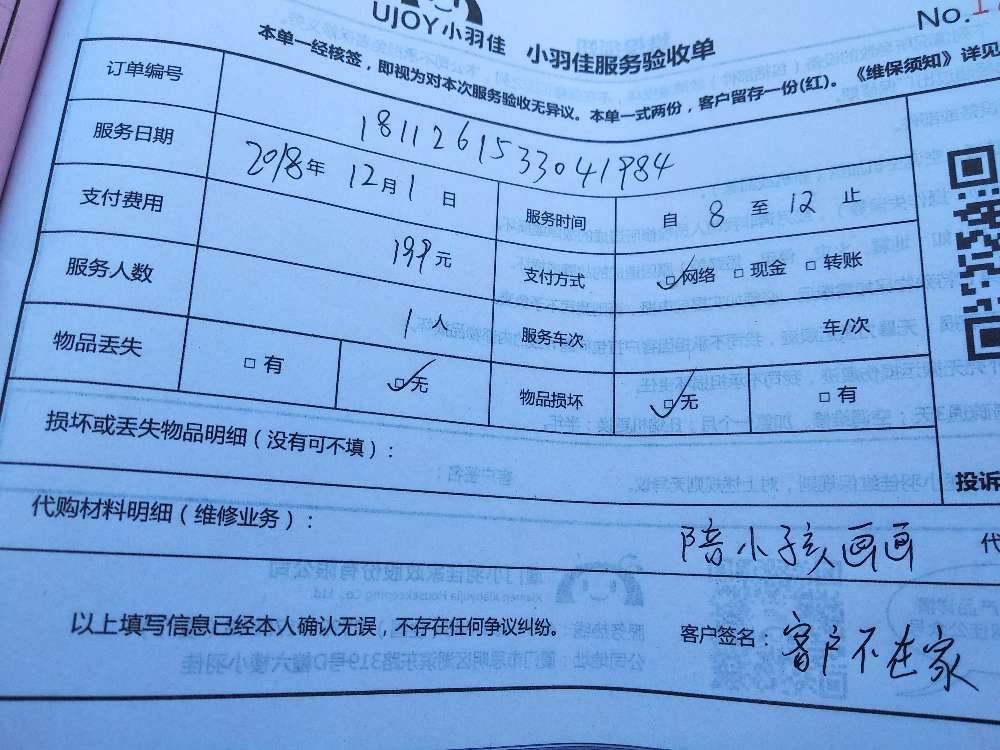 UJOY小羽佳 小羽佳服务验收单 No.1
本单一经核签，即视为对本次服务验收无异议。本单一式两份，客户留存一份(红)。《维保须知》详见
订单编号 1811261533041984
服务日期 2018年 12月1日 服务时间 自 8 至 12 止
支付费用 199元 支付方式 ☑网络 □现金 □转账
服务人数 1人 服务车次 车/次
物品丢失 □有 ☑无 物品损坏 ☑无 □有
损坏或丢失物品明细（没有可不填）：
投诉
代购材料明细（维修业务）： 陪小孩画画
以上填写信息已经本人确认无误，不存在任何争议纠纷。 客户签名：客户不在家